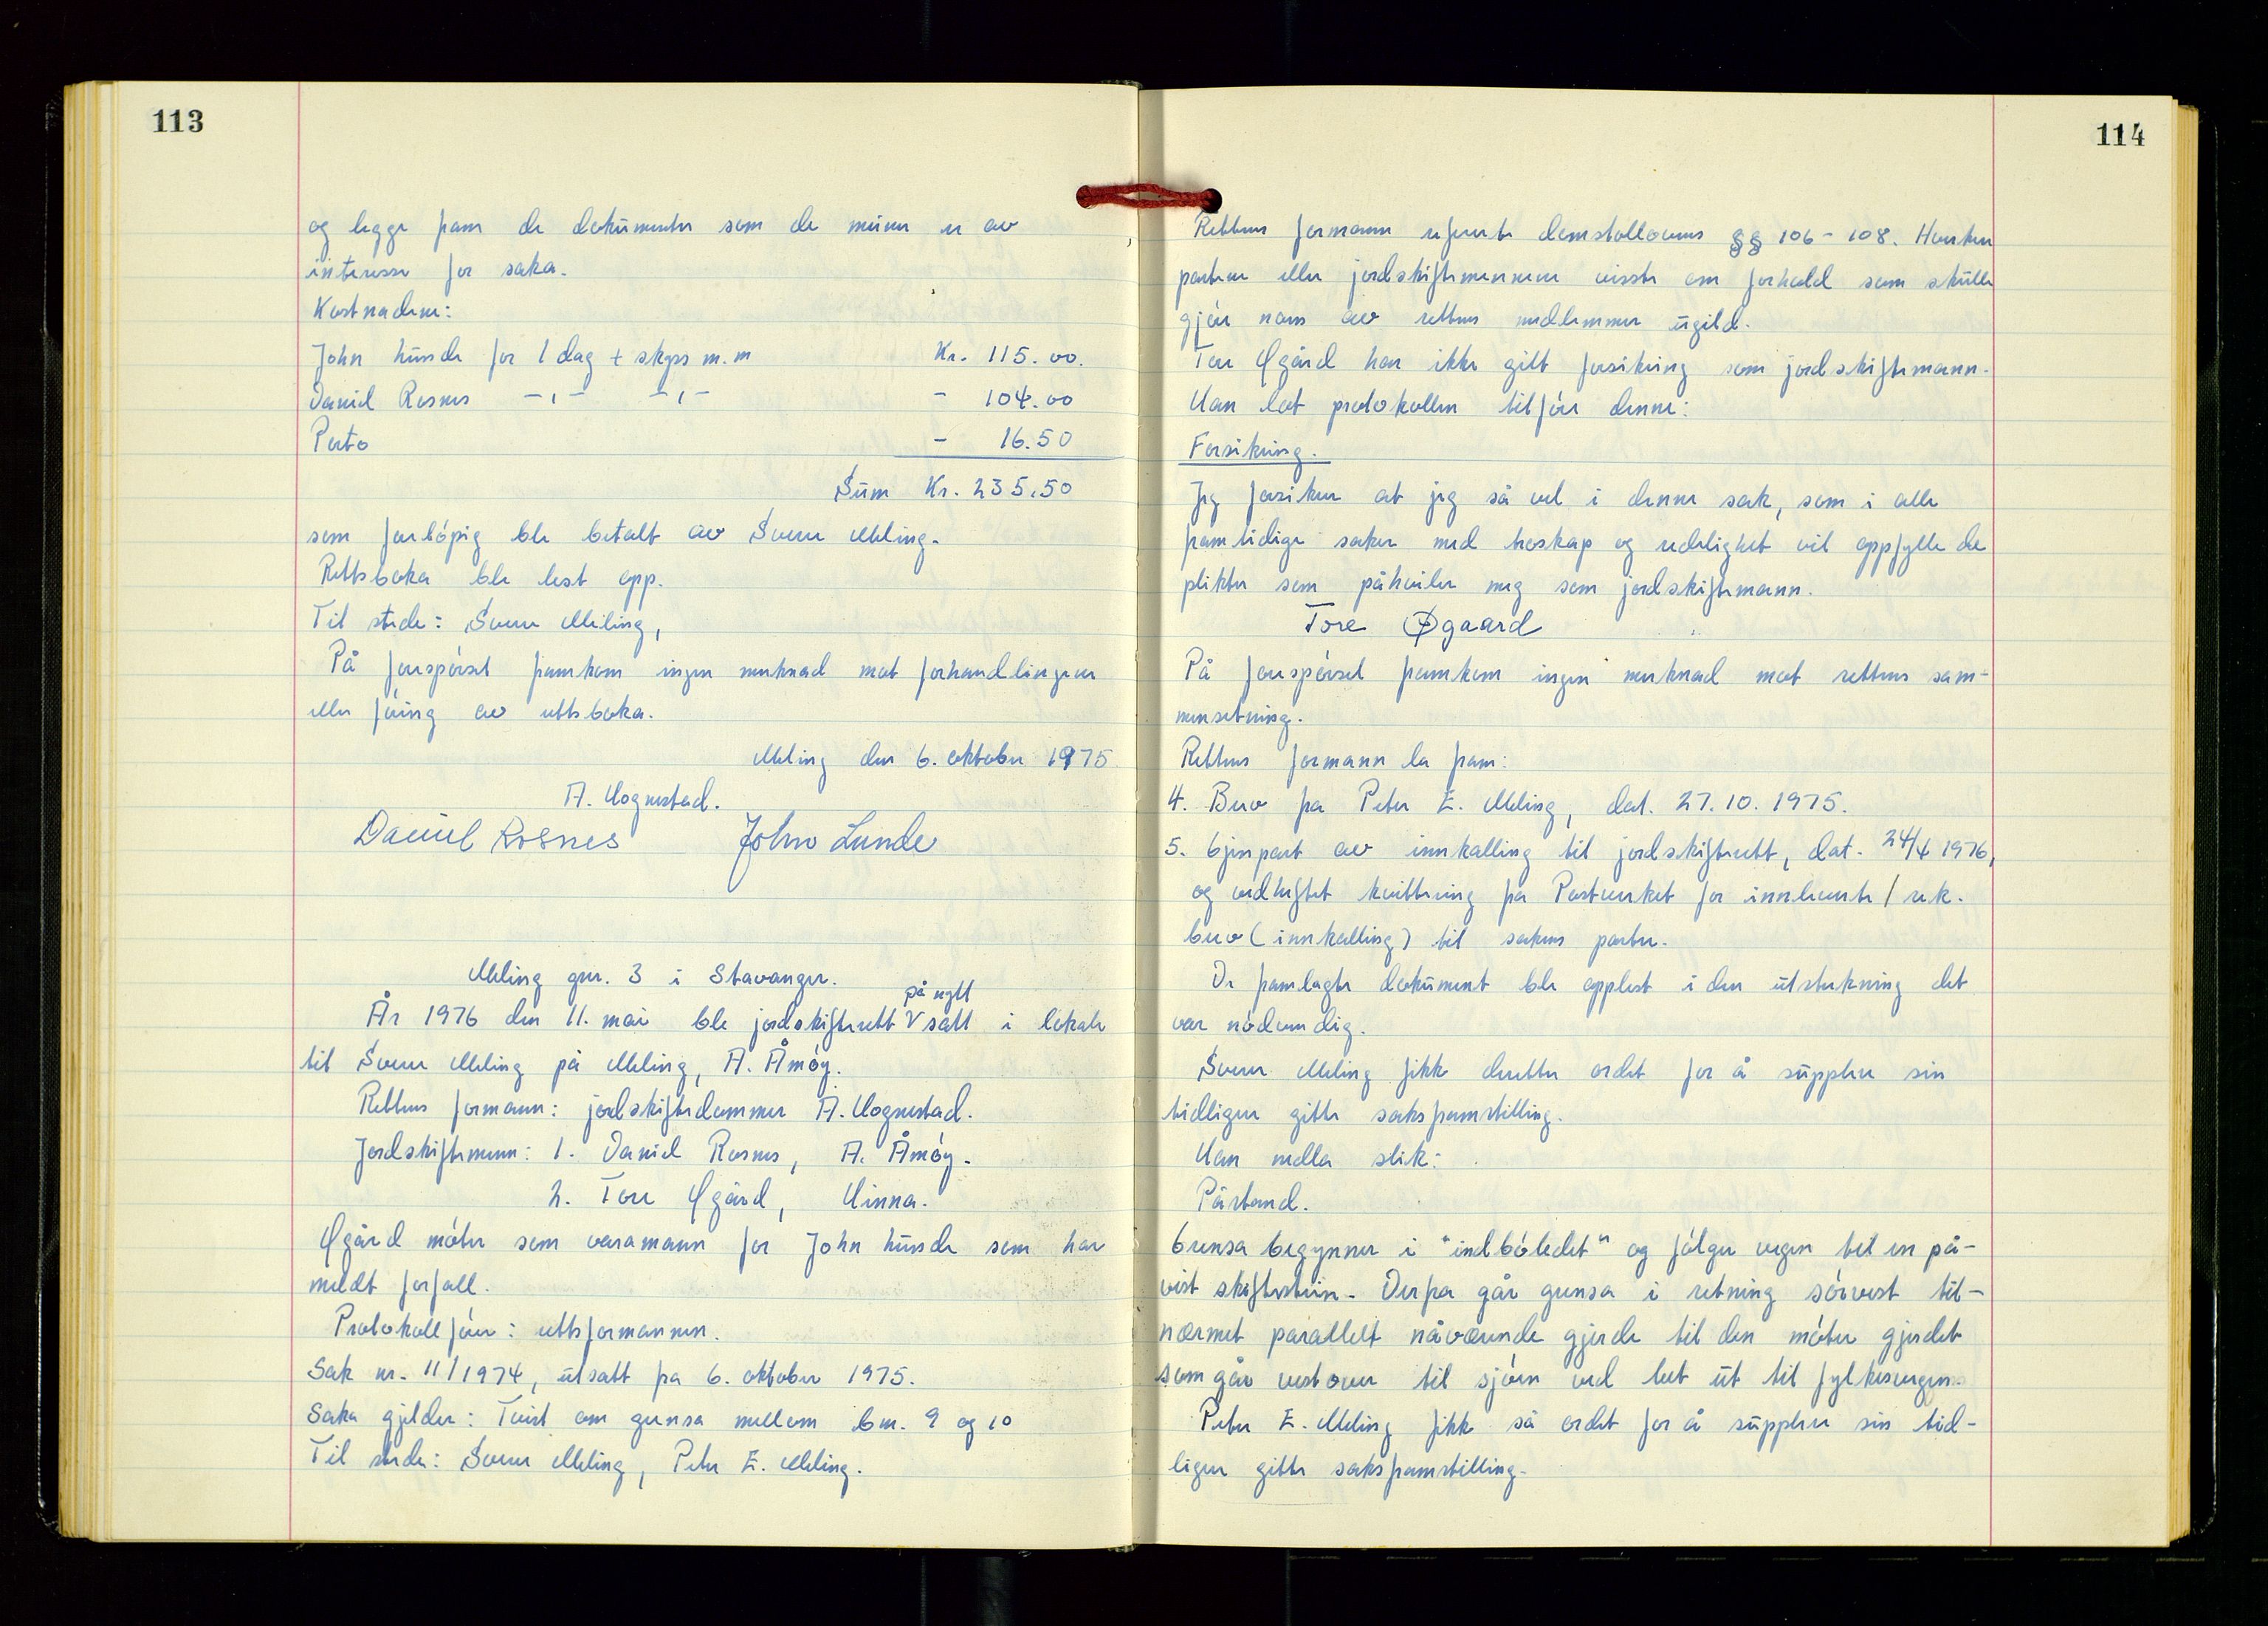 113
og legge fram de dokumenter som de mener er av
interesse for saka.
Kostnadene:
John Lunde for 1 dag + skyss m.m Kr. 115.00.
Daniel Rosnes -,- -,- - 104.00
Porto - 16.50
Sum Kr. 235.50
som forløpig ble betalt av Sverre Meling.
Rettsboka ble lest opp.
Til stede: Sverre Meling,
På forespørsel framkom ingen merknad mot forhandlingene
eller føring av rettsboka.
Meling den 6. oktober 1975
A. Hognestad.
Daniel Rosnes John Lunde
Meling gnr. 3 i Stavanger.
på nytt
År 1976 den 11. mai ble jordskifterett V satt i lokale
til Sverre Meling på Meling, A. Åmøy.
Rettens formann: jordskiftedommer A. Hognestad.
Jordskiftemenn: 1. Daniel Rosnes, A. Åmøy.
2. Tore Øgård, Hinna.
Øgård møter som varamann for John Lunde som har
meldt forfall.
Protokollfører: rettsformannen.
Sak nr. 11/1974, utsatt fra 6. oktober 1975.
Saka gjelder: Tvist om grensa mellom bnr. 9 og 10
Til stede: Sverre Meling, Peter E. Meling.
114
Rettens formann refererte domstollovens §§ 106-108. Hverken
partene eller jordskiftemennene visste om forhold som skulle
gjøre noen av rettens medlemmer ugild.
Tore Øgård har ikke gitt forsikring som jordskiftemann.
Han lot protokollen tilføre denne:
Forsikring.
Jeg forsikrer at jeg så vel i denne sak, som i alle
framtidige saker med troskap og redelighet vil oppfylle de
plikter som påhviler meg som jordskiftemann.
Tore Øgaard
På forespørsel framkom ingen merknad mot rettens sam-
mensetning.
Rettens formann la fram:
4. Brev fra Peter E. Meling, dat. 27.10.1975.
5. Gjenpart av innkalling til jordskifterett, dat. 24/4 1976,
og vedheftet kvittering fra Postverket for innleverte / rek.
brev (innkalling) til sakens parter.
De framlagte dokument ble opplest i den utstrekning det
var nødvendig.
Sverre Meling fikk deretter ordet for å supplere sin
tidligere gitte saksframstilling.
Han nedla slik:
Påstand.
Grensa begynner i "indbøledet" og følger vegen til en på-
vist skiftestein. Derfra går grensa i retning sørvest til-
nærmet parallelt nåværende gjerde til den møter gjerdet
som går vestover til sjøen ved leet ut til fylkesvegen.
Peter E. Meling fikk så ordet for å supplere sin tid-
ligere gitte saksframstilling.